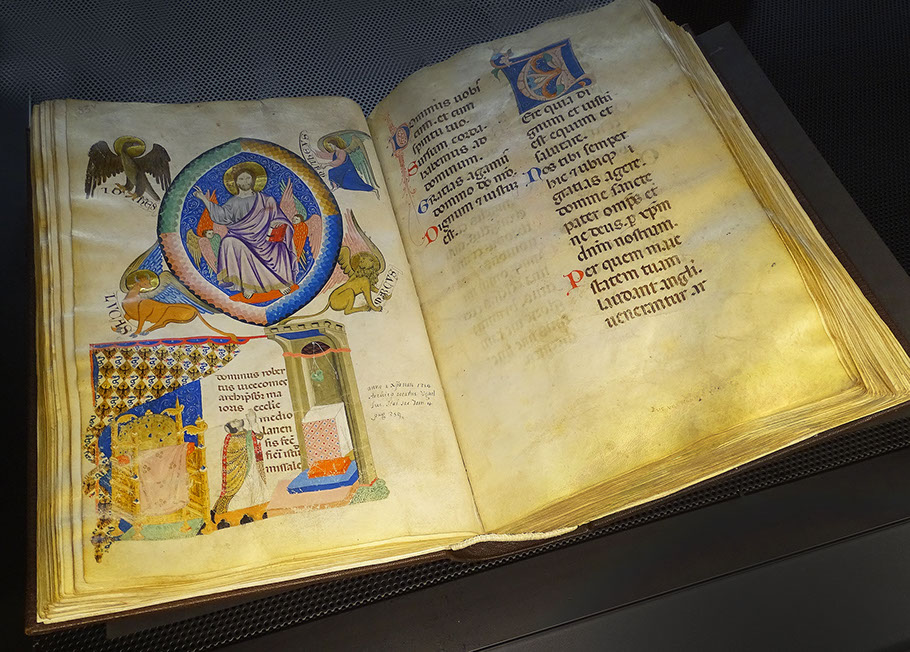 LUCAS
MARCUS
dominus rober
tus uicecomes
archiepṡ ma
ioris ecclie
medio
lanen
sis fec̄
fieri istū
missale
Dominus uobis
cum. et cum
spiritu tuo.
Sursum corda.
habemus ad
dominum.
Gratias agamus
domino deo
Dignum et iustum
est.
Ere quia di
gnum et iustū
est equum et
salutare.
Nos tibi semper
hic et ubique
gratias agere.
domine sancte
pater omp̄s et
ne deus. p xp̄m
dn̄m nostrum.
Per quem maie
statem tuam.
laudant angli.
uenerantur ar